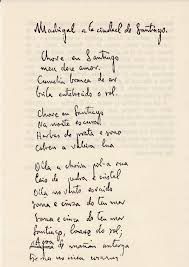 Madrigal a la ciudad de Santiago.
Chove en Santiago
meu doce amor.
Camelia branca do ar
brila entebrecido o sol.
Chove en Santiago
na noite escura
Herbas de prata e sono
cobren a valeira lua
Olla a choiva pol-a rua
laio de pedra e cristal
Olla no vento esvaido
soma e cinza do teu mar
soma e cinza do teu mar
Santiago, lonxe do sol;
Agoa de mañan anterga
no meu corazon